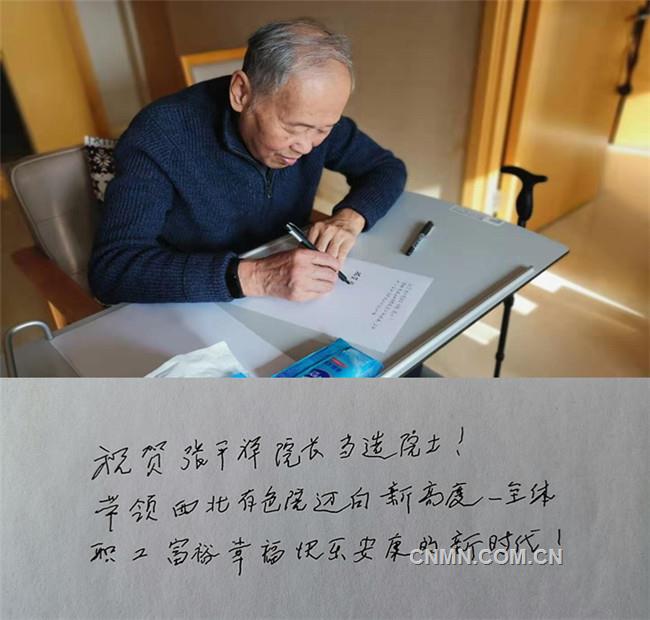 祝贺张平祥院长当选院士！
带领西北有色院迈向新高度—全体
职工富裕幸福快乐安康的新时代！
CNMN.COM.CN